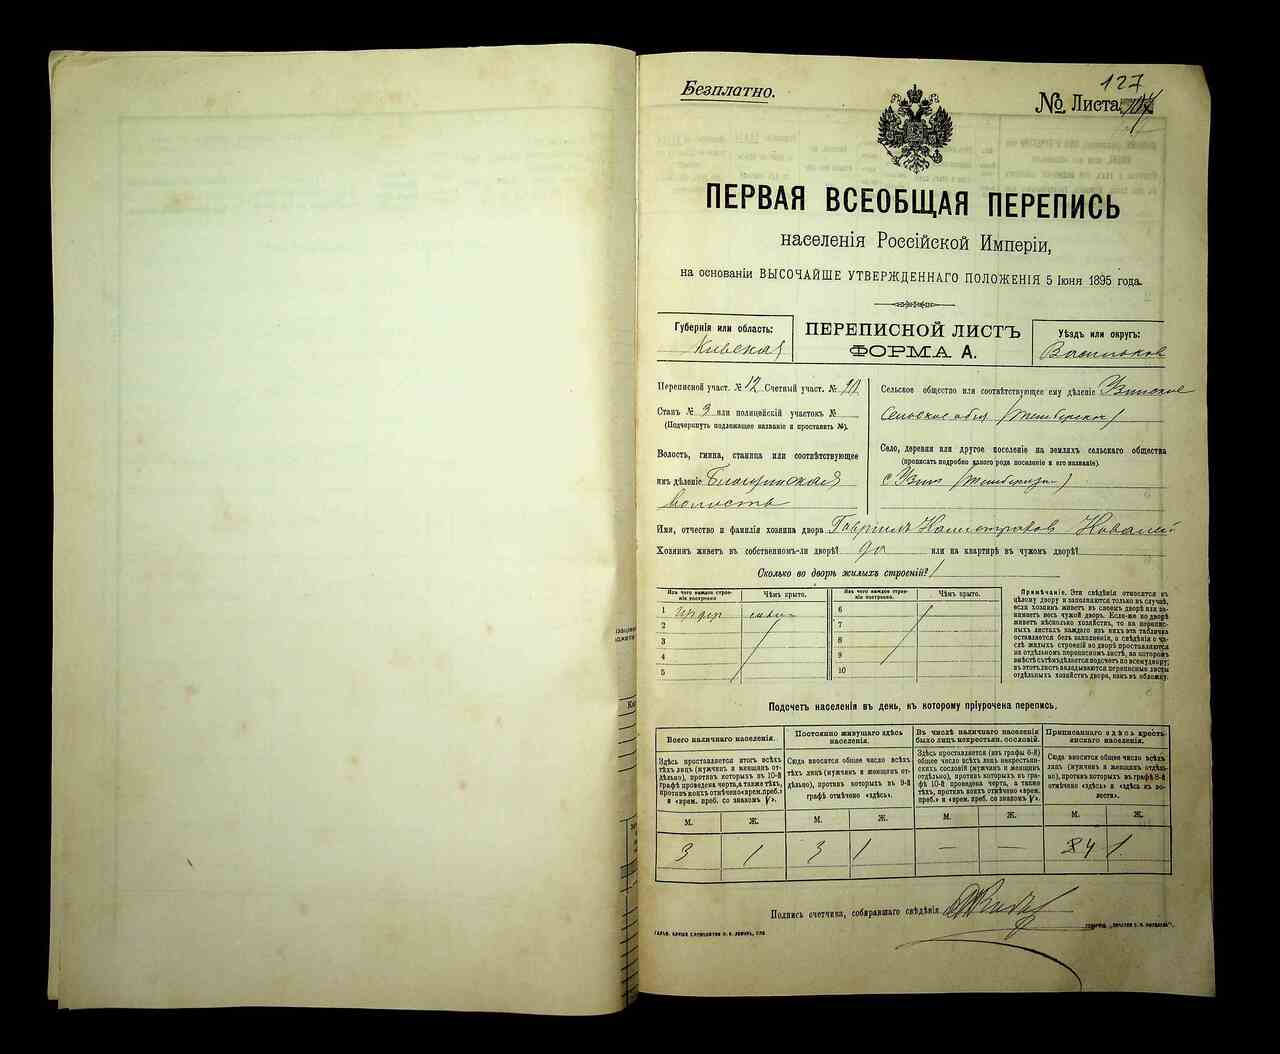 Безплатно.
127
№ Листа
ПЕРВАЯ ВСЕОБЩАЯ ПЕРЕПИСЬ
населенія Россійской Имперіи,
на основаніи ВЫСОЧАЙШЕ УТВЕРЖДЕННАГО ПОЛОЖЕНІЯ 5 Іюня 1895 года.
Губернія или область:
Кіевская
ПЕРЕПИСНОЙ ЛИСТЪ
ФОРМА А.
Уѣздъ или округъ:
Васильков
Переписной участ. № 12 Счетный участ. № 11
Станъ № 3 или полицейскій участокъ №
(Подчеркнуть подлежащее названіе и проставить №).
Волость, гмина, станица или соотвѣтствующее
имъ дѣленіе
волость
Сельское общество или соотвѣтствующее ему дѣленіе Узинское
Сельское
Село, деревня или другое поселеніе на земляхъ сельскаго общества
(прописать подробно какого рода поселеніе и его названіе).
с Узин
Имя, отчество и фамилія хозяина двора Гавриилъ Калистратов Коваль
Хозяинъ живетъ въ собственномъ-ли дворѣ? да или на квартирѣ въ чужомъ дворѣ?
Сколько во дворѣ жилыхъ строеній? 1
Изъ чего каждое строе-
ніе построено
Чѣмъ крыто.
Изъ чего каждое строе-
ніе построено.
Чѣмъ крыто.
1
6
2
7
3
8
4
9
5
10
Примѣчаніе. Эти свѣдѣнія относятся къ
цѣлому двору и заполняются только въ случаѣ,
если хозяинъ живетъ въ своемъ дворѣ или за-
нимаетъ весь чужой дворъ. Если-же во дворѣ
живетъ нѣсколько хозяйствъ, то на перепис-
ныхъ листахъ каждаго изъ нихъ эта табличка
оставляется безъ заполненія, а свѣдѣнія о чи-
слѣ жилыхъ строеній во дворѣ проставляются
на отдѣльномъ переписномъ листѣ, на которомъ
вмѣстѣ съ тѣмъ дѣлается подсчетъ по всему двору;
въ этотъ листъ вкладываются переписные листы
отдѣльныхъ хозяйствъ двора, какъ въ обложку.
Подсчетъ населенія въ день, къ которому пріурочена перепись.
Всего наличнаго населенія.
Постоянно живущаго здѣсь
населенія.
Въ числѣ наличнаго населенія
было лицъ некрестьян. сословій.
Приписаннаго здѣсь кресть-
янскаго населенія.
Здѣсь проставляется итогъ всѣхъ
тѣхъ лицъ (мужчинъ и женщинъ от-
дѣльно), противъ которыхъ въ 10-й
графѣ проведена черта, а также тѣхъ,
противъ коихъ отмѣчено «врем. преб.»
и «врем. преб. со знакомъ V».
Сюда вносится общее число всѣхъ
тѣхъ лицъ (мужчинъ и женщинъ от-
дѣльно), противъ которыхъ въ 9-й
графѣ отмѣчено «здѣсь».
Здѣсь проставляется (изъ графы 6-й)
общее число всѣхъ лицъ некрестьян-
скихъ сословій (мужчинъ и женщинъ
отдѣльно), противъ которыхъ въ гра-
фѣ 10-й проведена черта, а также
тѣхъ, противъ коихъ отмѣчено «врем.
преб.» и «врем. преб. со знакомъ V».
Сюда вносится общее число всѣхъ
лицъ (мужчинъ и женщинъ отдѣль-
но), противъ которыхъ въ графѣ 8-й
отмѣчено «здѣсь» и «здѣсь въ во-
лости».
М. Ж. М. Ж. М. Ж. М. Ж.
3 1 3 1 — — 4 1
Подпись счетчика, собиравшаго свѣдѣнія